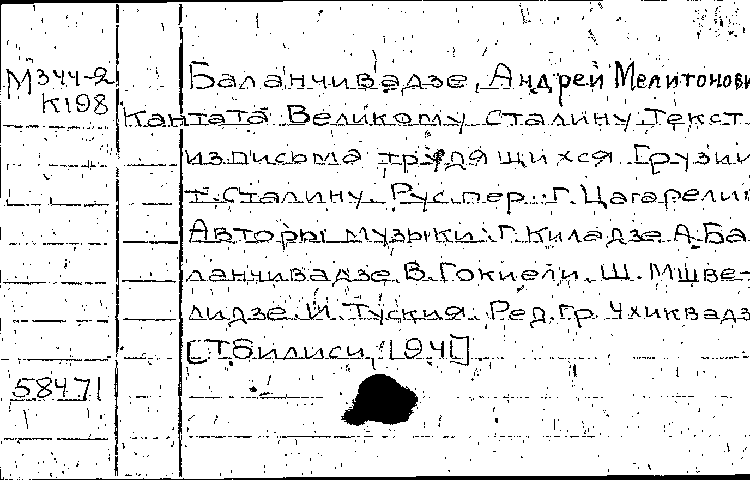 М344-2 Баланчивадзе, Андрей Мелитонови
К198 Кантата Великому Сталину. Текст
из письма трудящихся Грузии
т. Сталину. Рус. пер.: Г. Цагарели
Авторы музыки: Г. Киладзе А. Ба-
ланчивадзе В. Гокиели. Ш. Мшве-
лидзе И. Туския. Ред. гр. Чхиквадз
[Тбилиси, 1941]
58471